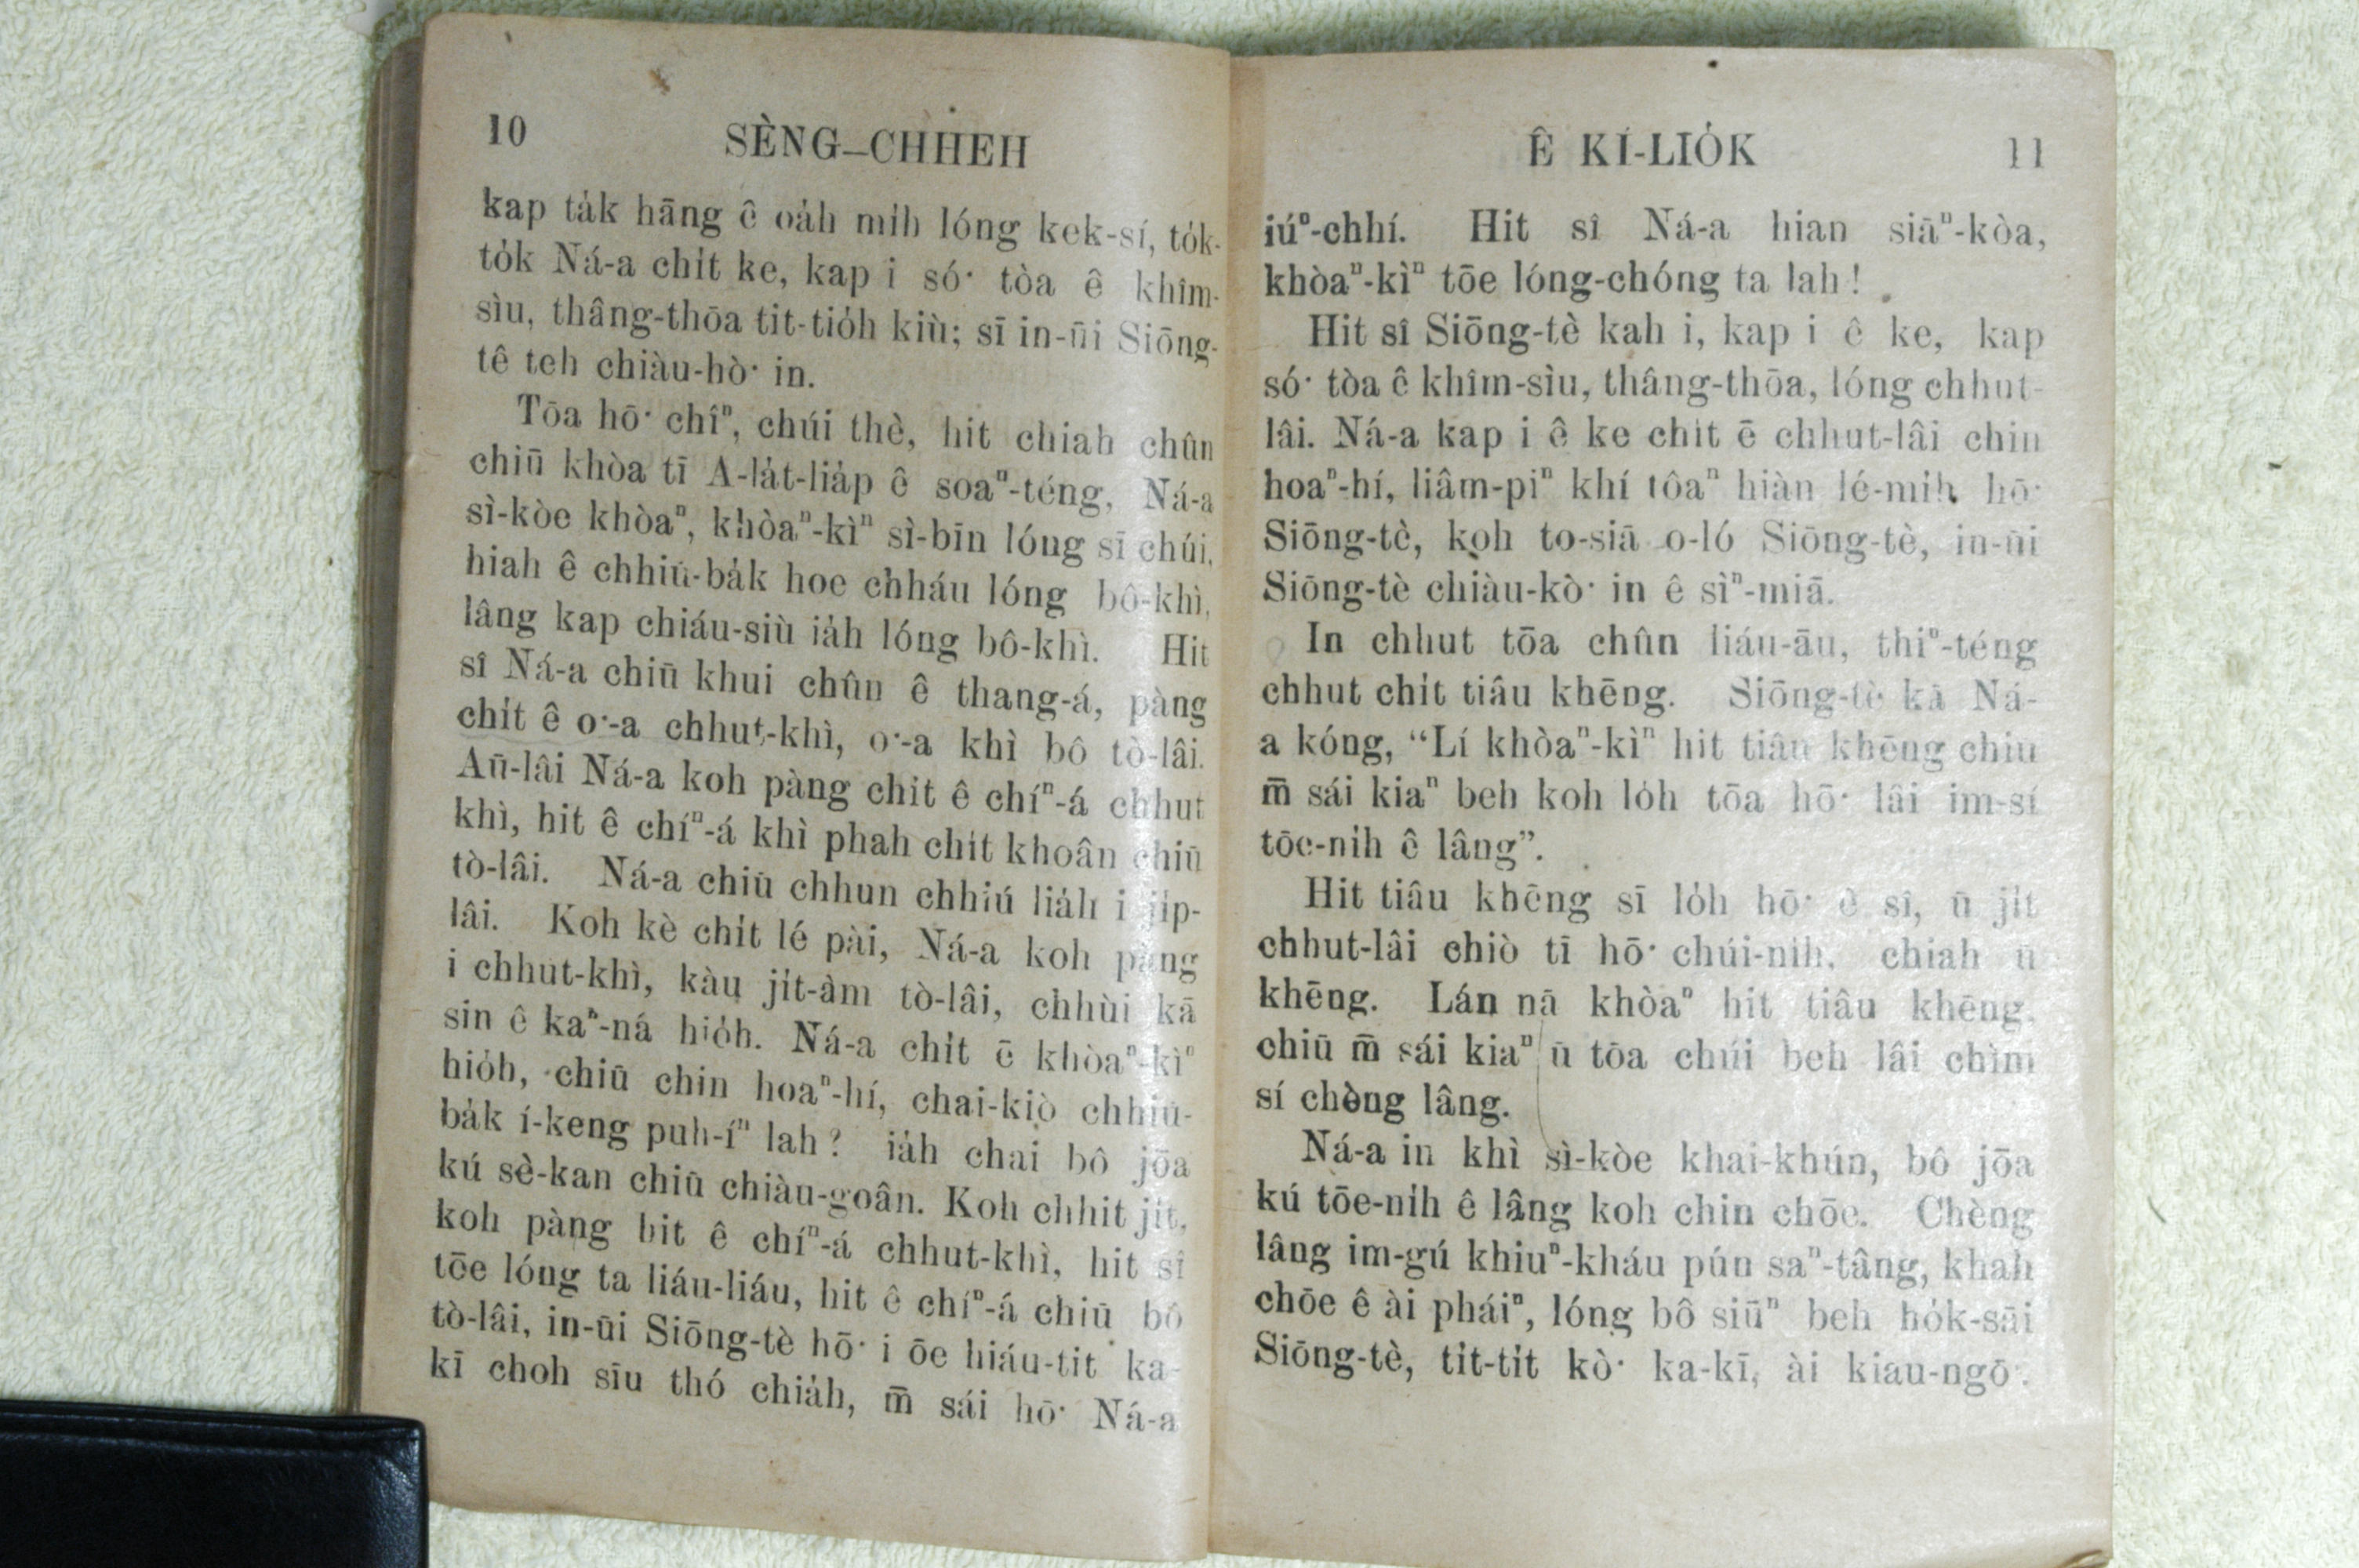 10
SÈNG-CHHEH
kap ta̍k hāng ê oa̍h mi̍h lóng kek-sí, to̍k-
to̍k Ná-a chi̍t ke, kap i só͘ tòa ê khîm-
sìu, thâng-thōa tit-tio̍h kiù; sī in-ūi Siōng-
tê teh chiàu-hò͘ in.
Tōa hō͘ chîⁿ, chúi thè, hit chiah chûn
chiū khòa tī A-la̍t-lia̍p ê soaⁿ-téng, Ná-a
sì-kòe khòaⁿ, khòaⁿ-kìⁿ sì-bīn lóng sī chúi,
hiah ê chhiū-ba̍k hoe chháu lóng bô-khì,
lâng kap chiáu-siù ia̍h lóng bô-khì. Hit
sî Ná-a chiū khui chûn ê thang-á, pàng
chi̍t ê o͘-a chhut-khì, o͘-a khì bô tò-lâi.
Aū-lâi Ná-a koh pàng chit ê chíⁿ-á chhut
khì, hit ê chíⁿ-á khì phah chi̍t khoân chiū
tò-lâi. Ná-a chiū chhun chhiú lia̍h i ji̍p-
lâi. Koh kè chi̍t lé pài, Ná-a koh pàng
i chhut-khì, kàu ji̍t-àm tò-lâi, chhùi kā
sin ê kaⁿ-ná hio̍h. Ná-a chi̍t ē khòaⁿ-kìⁿ
hio̍h, chiū chin hoaⁿ-hí, chai-kiò chhiū-
ba̍k í-keng puh-íⁿ lah? ia̍h chai bô jōa
kú sè-kan chiū chiàu-goân. Koh chhit ji̍t,
koh pàng hit ê chíⁿ-á chhut-khì, hit sî
tōe lóng ta liáu-liáu, hit ê chíⁿ-á chiū bô
tò-lâi, in-ūi Siōng-tè hō͘ i ōe hiáu-tit ka-
kī choh sīu thó chia̍h, m̄ sái hō͘ Ná-a
Ê KÍ-LIO̍K
11
iúⁿ-chhí. Hit sî Ná-a hian siāⁿ-kòa,
khòaⁿ-kìⁿ tōe lóng-chóng ta lah!
Hit sî Siōng-tè kah i, kap i ê ke, kap
só͘ tòa ê khîm-sìu, thâng-thōa, lóng chhut-
lâi. Ná-a kap i ê ke chit ē chhut-lâi chin
hoaⁿ-hí, liâm-piⁿ khí tôaⁿ hiàn lé-mi̍h hō͘
Siōng-tè, koh to-siā o-ló Siōng-tè, in-ūi
Siōng-tè chiàu-kò͘ in ê sìⁿ-miā.
In chhut tōa chûn liáu-āu, thiⁿ-téng
chhut chi̍t tiâu khēng. Siōng-tè kā Ná-
a kóng, “Lí khòaⁿ-kìⁿ hit tiâu khēng chiu
m̄ sái kiaⁿ beh koh lo̍h tōa hō͘ lâi im-sí
tōe-ni̍h ê lâng”.
Hit tiâu khēng sī lo̍h hō͘ ê sî, ū ji̍t
chhut-lâi chiò tī hō͘ chúi-ni̍h, chiah ū
khēng. Lán nā khòaⁿ hit tiâu khēng,
chiū m̄ sái kiaⁿ ū tōa chúi beh lâi chìm
sí chèng lâng.
Ná-a in khì sì-kòe khai-khún, bô jōa
kú tōe-ni̍h ê lâng koh chin chōe. Chèng
lâng im-gú khiuⁿ-kháu pún saⁿ-tâng, khah
chōe ê ài pháiⁿ, lóng bô siūⁿ beh ho̍k-sāi
Siōng-tè, ti̍t-ti̍t kò͘ ka-kī, ài kiau-ngō͘.